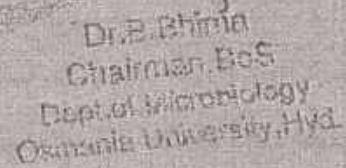 Dr.B.Bhima
Chairman.BoS
Dept.of Microbiology
Osmania University,Hyd.